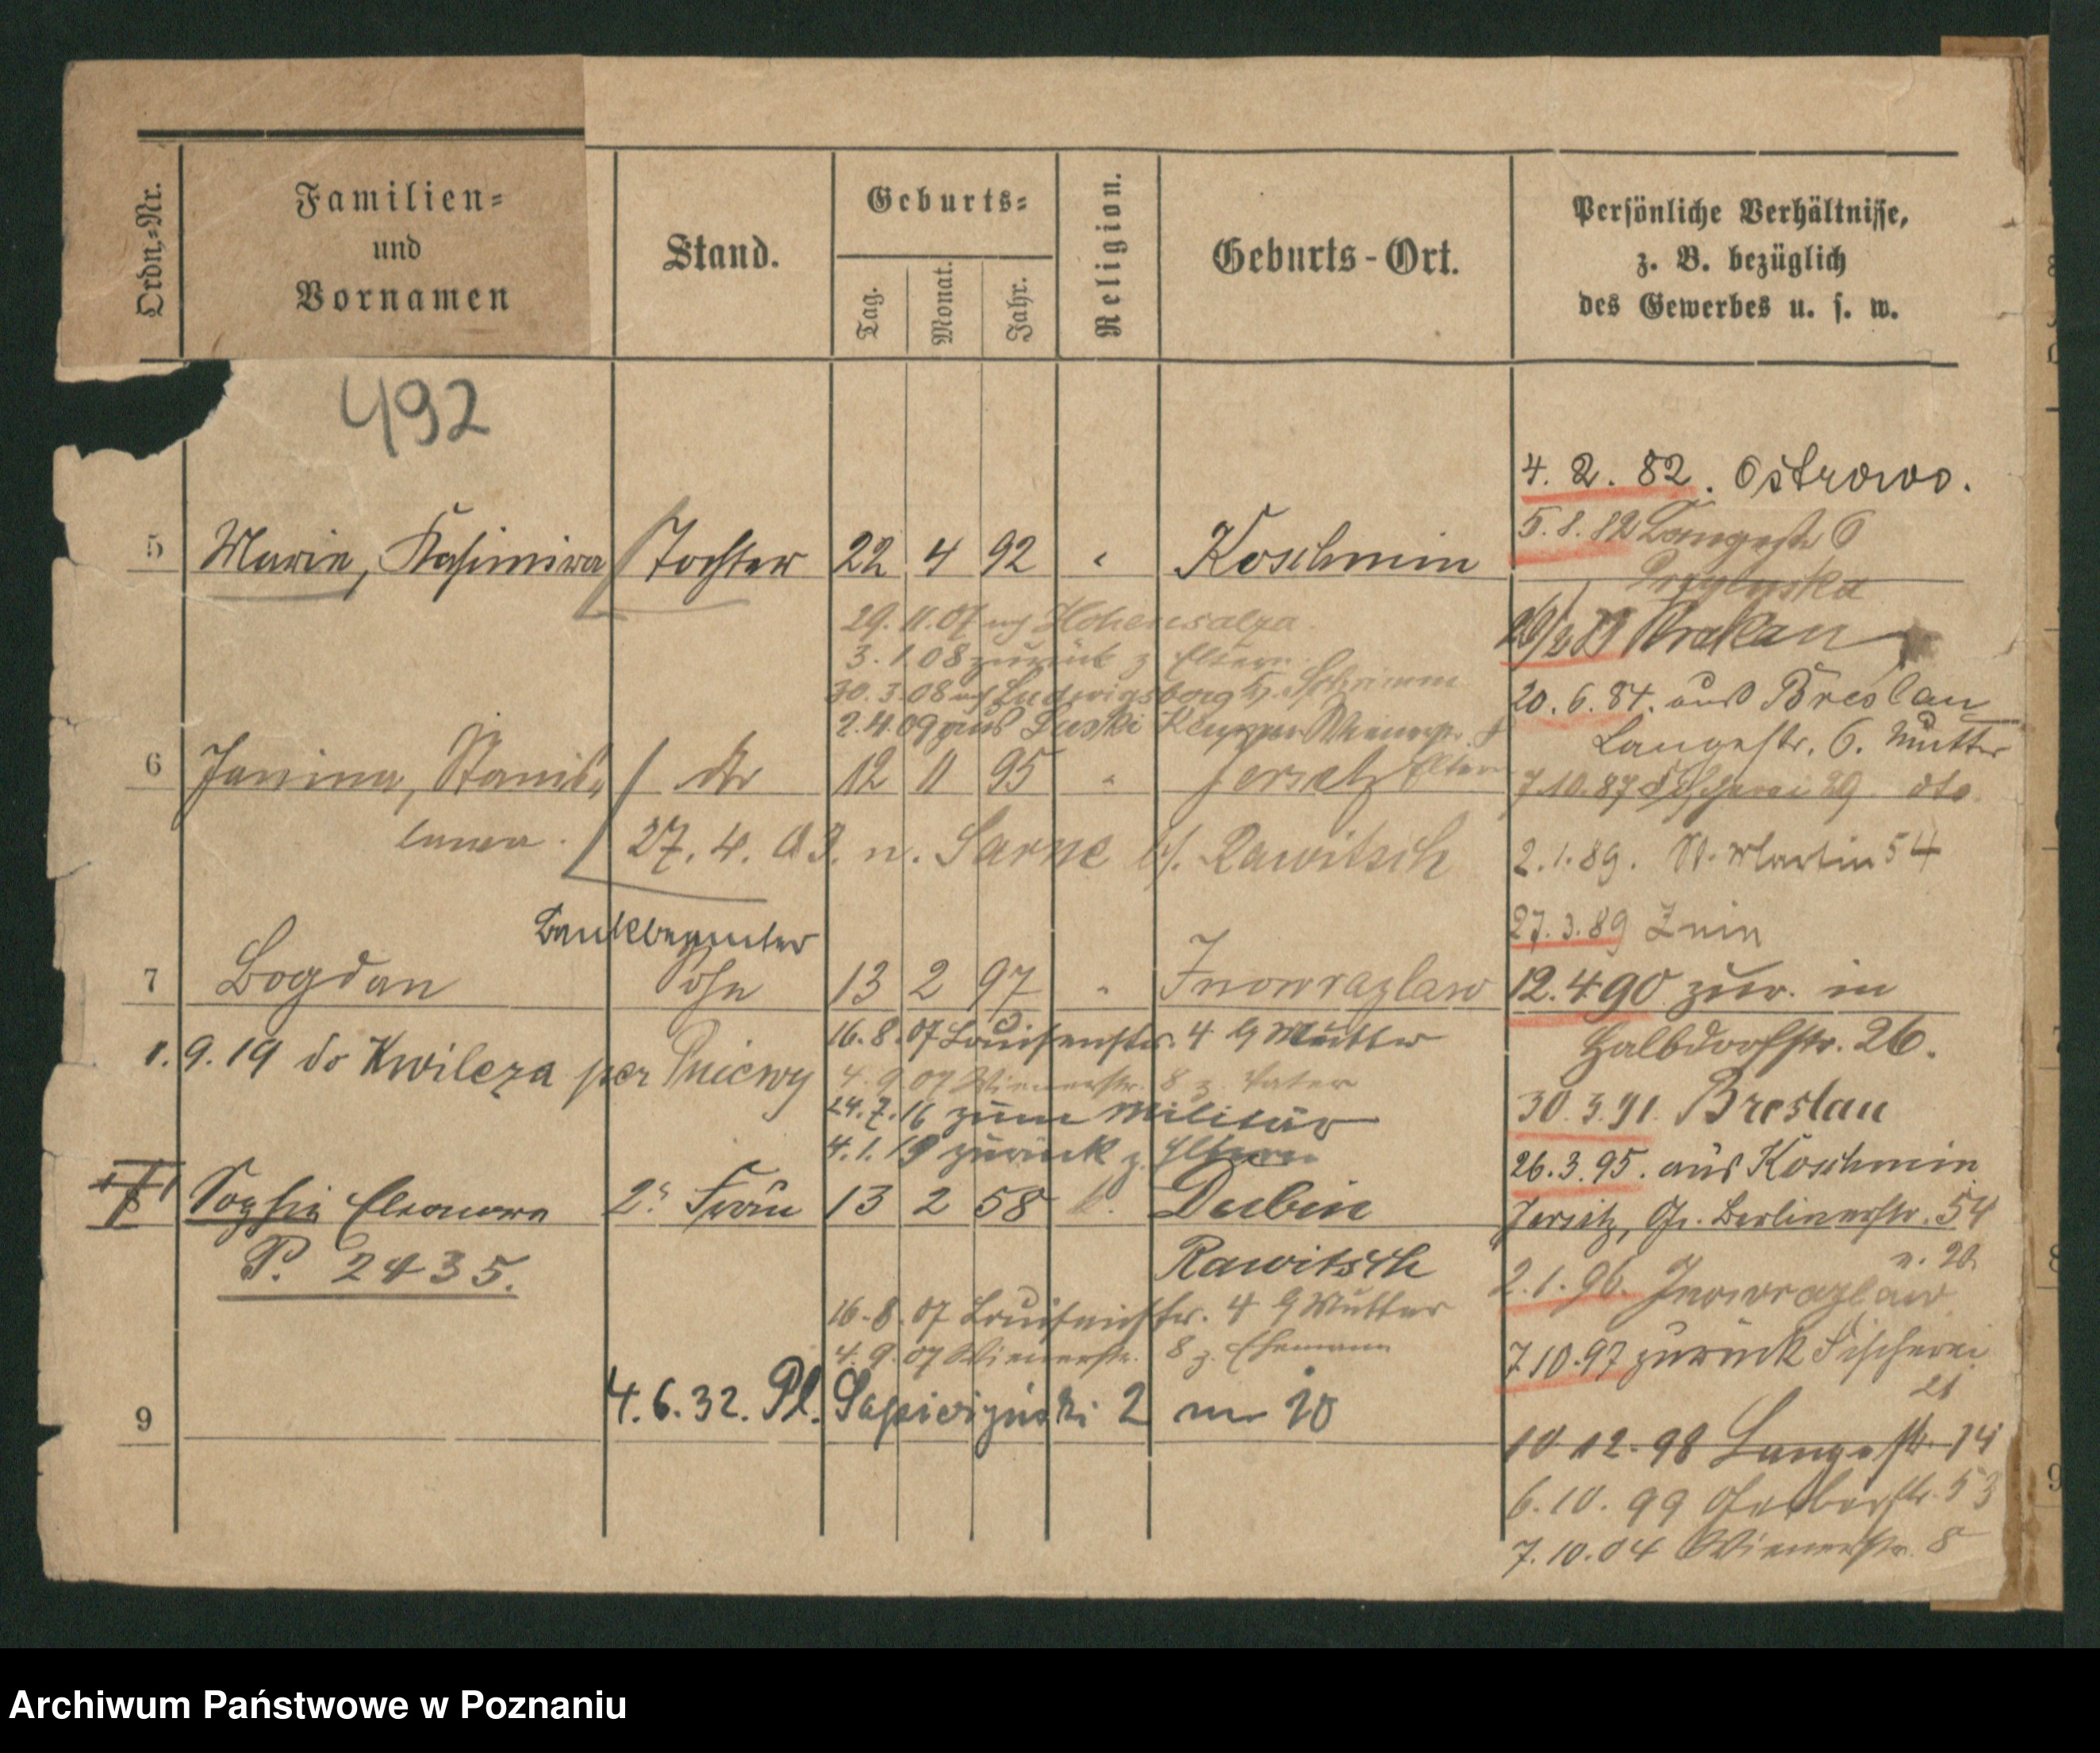 Ordn.-Nr.
Familien-
und
Vornamen
Stand.
Geburts-
Tag.
Monat.
Jahr.
Religion.
Geburts-Ort.
Persönliche Verhältnisse,
z. B. bezüglich
des Gewerbes u. s. w.
492
4. 2. 82. Ostrowo.
5. 8. 82 Langestr 6
5 Marie, Kasimira Tochter 22 4 92 " Koschmin
Krakau
29. 11. 07 Hohensalza.
3. 1. 08 zurück z Eltern.
30. 3. 08 Ludwigsborg Schrimm
2. 4. 09 aus
20. 6. 84. aus Breslau
Langestr. 6. Mutter
6 Janina, Stanis- dto 12 11 95 " Jersitz
lawa.
7. 10. 87 dto
27. 4. 03. n. Sarne b/. Rawitsch
2. 1. 89. St. Martin 54
27. 3. 89 Znin
Bankbeamter
7 Bogdan Sohn 13 2 97 " Inowrazlaw
12. 4 90 zur. in
Halbdorfstr. 26.
1. 9. 19 do Kwilcza per Pniewy
16. 8. 07 Louisenstr. 4 Mutter
4. 9. 07 Wienerstr. 8 z. Vater
24. 7. 16 zum Militär
4. 1. 19 zurück z. Eltern
30. 3. 91. Breslau
26. 3. 95. aus Koschmin
8 Sophie Eleonora 2. Frau 13 2 58 Dubin
Rawitsch
P. 2435.
Jersitz, Gr. Berlinerstr. 54
2. 1. 96. Inowrazlaw
16. 8. 07 Louisenstr. 4 Mutter
4. 9. 07 Wienerstr. 8 z. Ehemann
7 10. 97 zurück Fischerei
21
4. 6. 32. Pl. Sapieżyński 2 m 10
9
10 12. 98 Langestr. 14
6. 10. 99 Gerberstr. 53
7. 10. 04 Wienerstr. 8
Archiwum Państwowe w Poznaniu